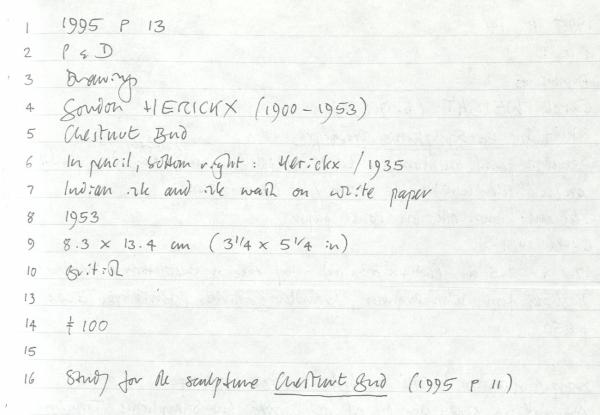 1 1995 P 13
2 P & D
3 Drawings
4 Gordon HERICKX (1900-1953)
5 Chestnut Bud
6 In pencil, bottom right: Herickx / 1935
7 Indian ink and ink wash on white paper
8 1953
9 8.3 x 13.4 cm (3 1/4 x 5 1/4 in)
10 British
13
14 £100
15
16 Study for the sculpture Chestnut Bud (1995 P 11)